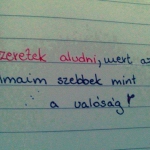 zeretek aludni, mert az
lmaim szebbek mint
a valóság!